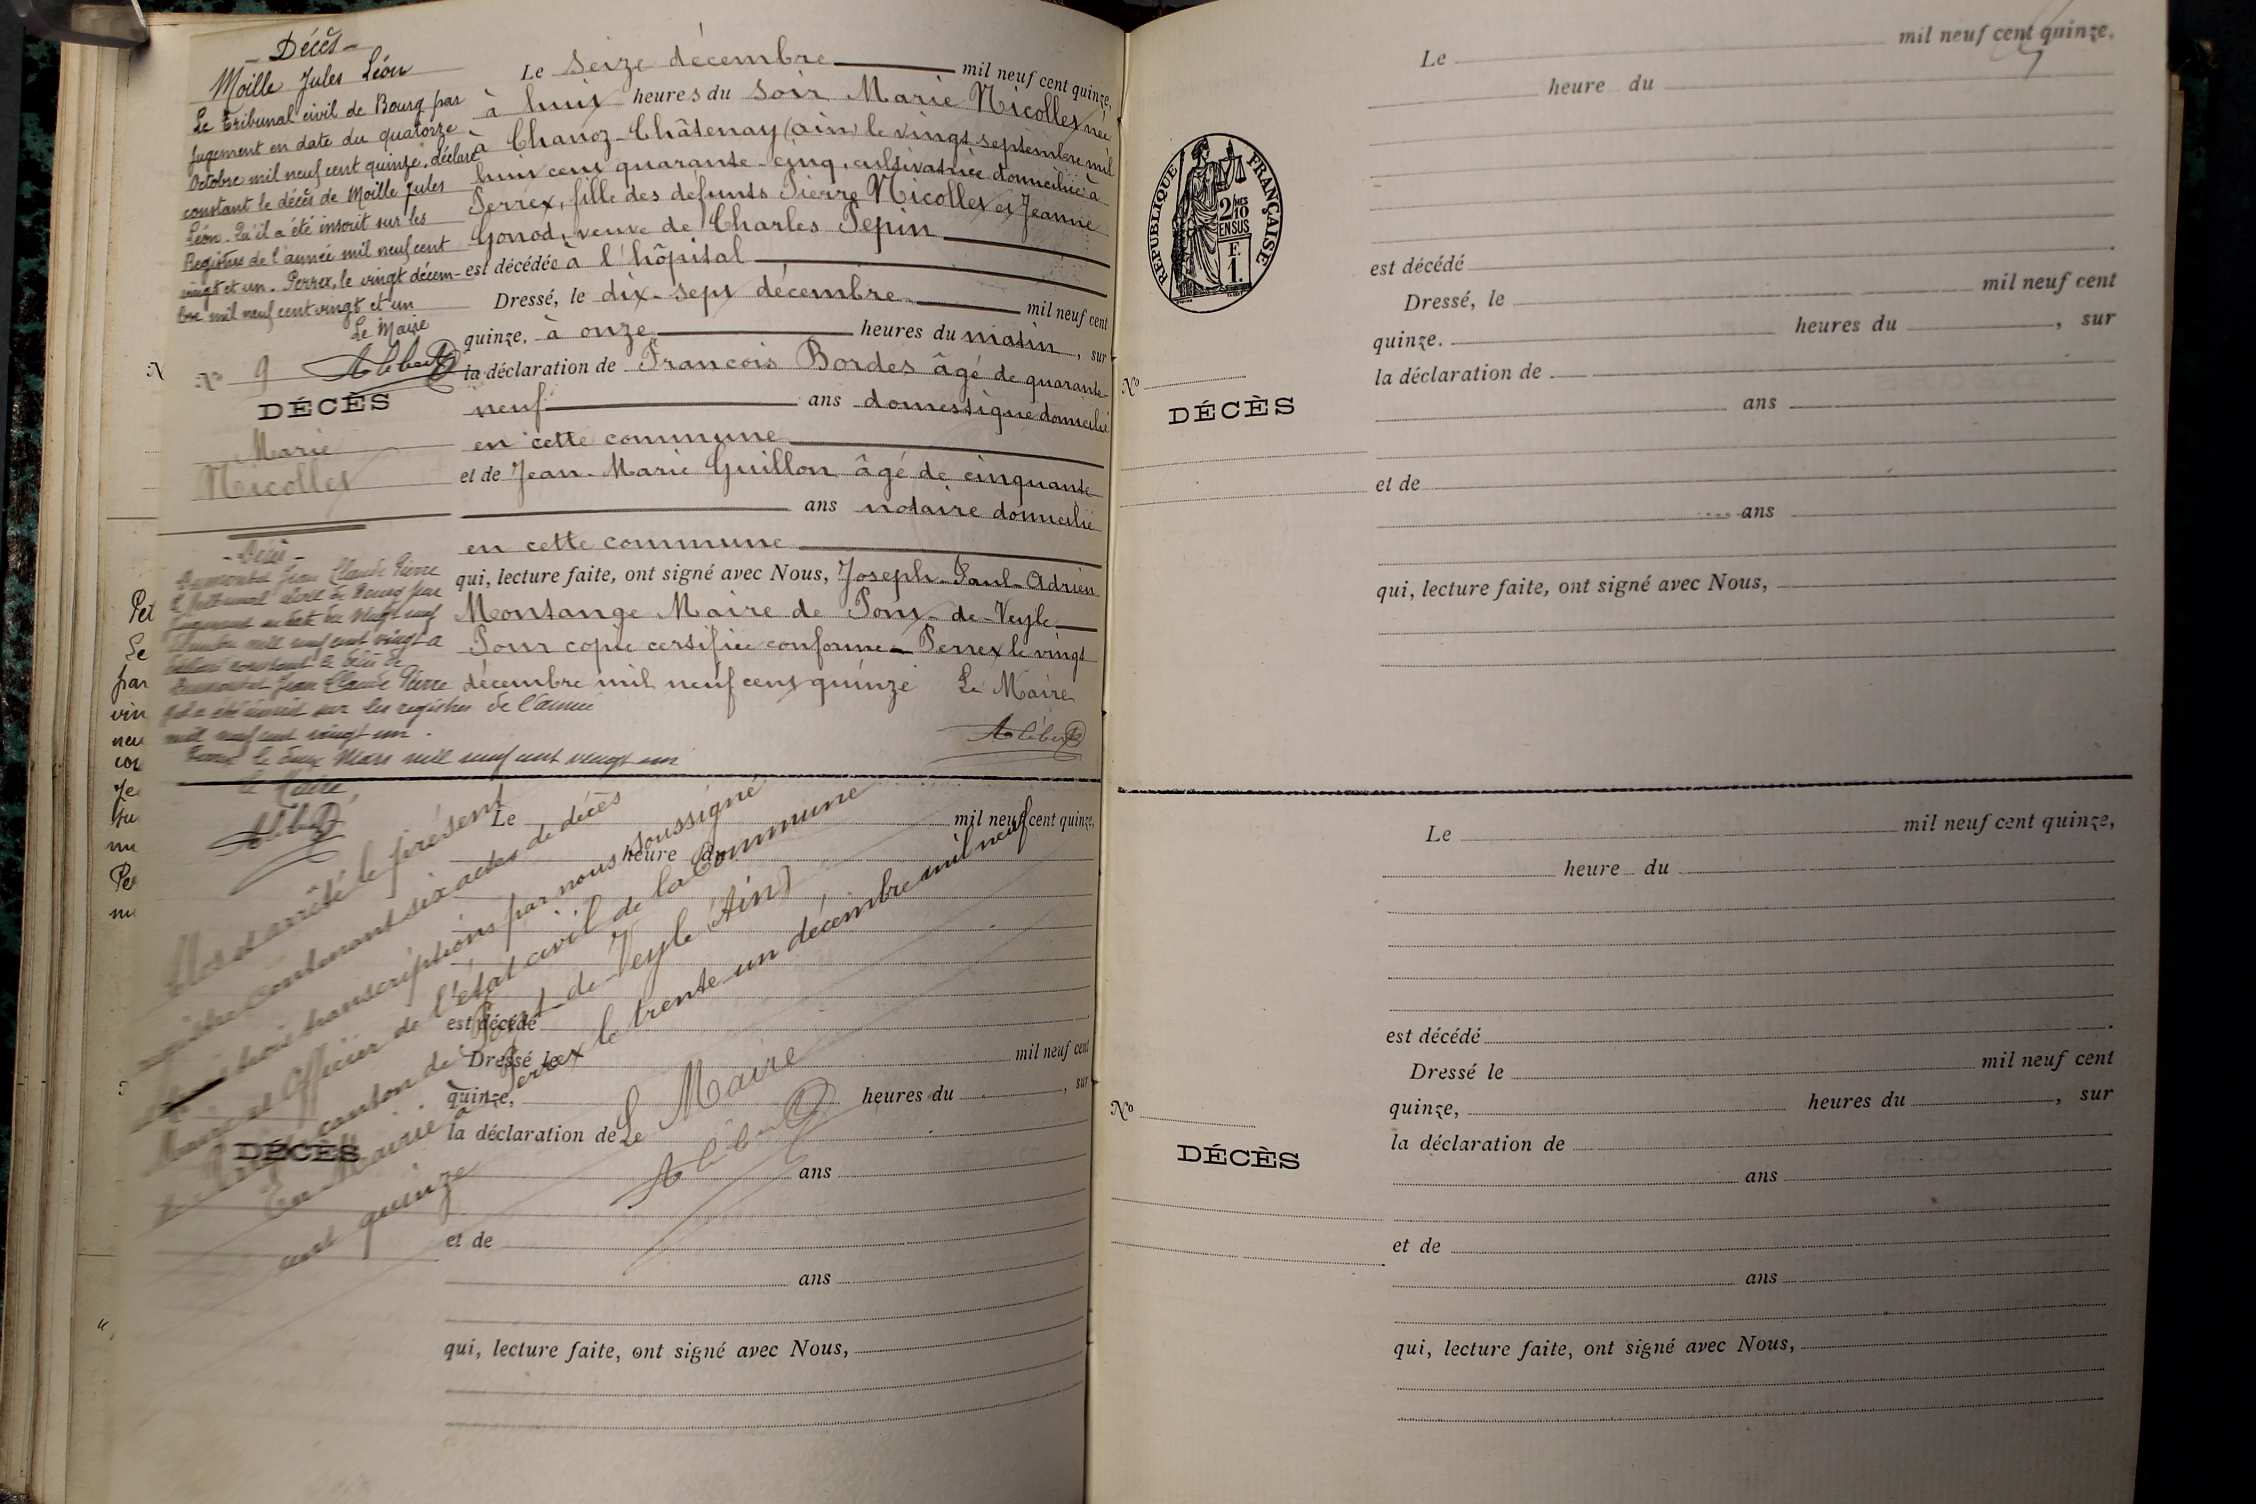 - Décès -
Moille Jules Léon
Le Tribunal civil de Bourg par
jugement en date du quatorze
Octobre mil neuf cent quinze, déclare
constant le décès de Moille Jules
Léon. Qu'il a été inscrit sur les
Registres de l'année mil neuf cent
vingt et un. Perrex, le vingt décem-
bre mil neuf cent vingt et un
Le Maire
N° 9
DÉCÈS
Marie
Nicolles
Le seize décembre mil neuf cent quinze,
à huit heures du soir Marie Nicolles née
à Chanoz-Châtenay (ain) le vingt septembre mil
huit cent quarante-cinq, cultivatrice domiciliée à
Perrex, fille des défunts Pierre Nicolles et Jeanne
Gonod, veuve de Charles Pepin
est décédée à l'hôpital
Dressé, le dix-sept décembre mil neuf cent
quinze, à onze heures du matin, sur
la déclaration de Francois Bordes âgé de quarante-
neuf ans domestique domicilié
en cette commune
et de Jean-Marie Guillon âgé de cinquante
ans notaire domicilié
en cette commune
qui, lecture faite, ont signé avec Nous, Joseph-Paul-Adrien
Montange Maire de Pont-de-Veyle
Pour copie certifiée conforme - Perrex le vingt
décembre mil neuf cent quinze Le Maire
- Décès -
Jean Claude Pierre
Le Tribunal civil de Bourg par
jugement en date du vingt neuf
mil neuf cent vingt a
déclaré constant le décès de
Jean Claude Pierre
qui a été inscrit sur les registres de l'année
mil neuf cent vingt un.
Perrex le deux Mars mil neuf cent vingt un
Le Maire,
Clos et arrêté le présent
registre contenant six actes de décès
et trois transcriptions par nous soussigné
Maire et Officier de l'état civil de la Commune
de Perrex canton de Pont-de-Veyle (Ain)
En Mairie à Perrex le trente un décembre mil neuf
cent quinze
Le Maire
Le mil neuf cent quinze,
heure du
est décédé
Dressé le mil neuf cent
quinze, heures du , sur
la déclaration de
ans
DÉCÈS
et de
ans
qui, lecture faite, ont signé avec Nous,
N
Pet
Le
par
vin
neu
cou
Je
Pe
RÉPUBLIQUE FRANÇAISE
2/10
EN SUS
F.
1.
Le mil neuf cent quinze,
heure du
est décédé
Dressé, le mil neuf cent
quinze. heures du , sur
la déclaration de
N°
DÉCÈS
ans
et de
ans
qui, lecture faite, ont signé avec Nous,
Le mil neuf cent quinze,
heure du
est décédé
Dressé le mil neuf cent
quinze, heures du , sur
N°
la déclaration de
DÉCÈS
ans
et de
ans
qui, lecture faite, ont signé avec Nous,